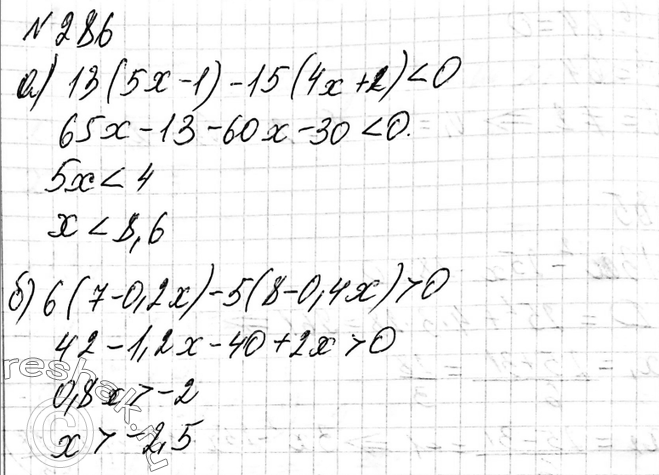 №286
а) 13(5x-1)-15(4x+2)<0
65x-13-60x-30<0.
5x<4
x<8,6
б) 6(7-0,2x)-5(8-0,4x)>0
42-1,2x-40+2x>0
0,8x>-2
x>-2,5
© reshak.ru